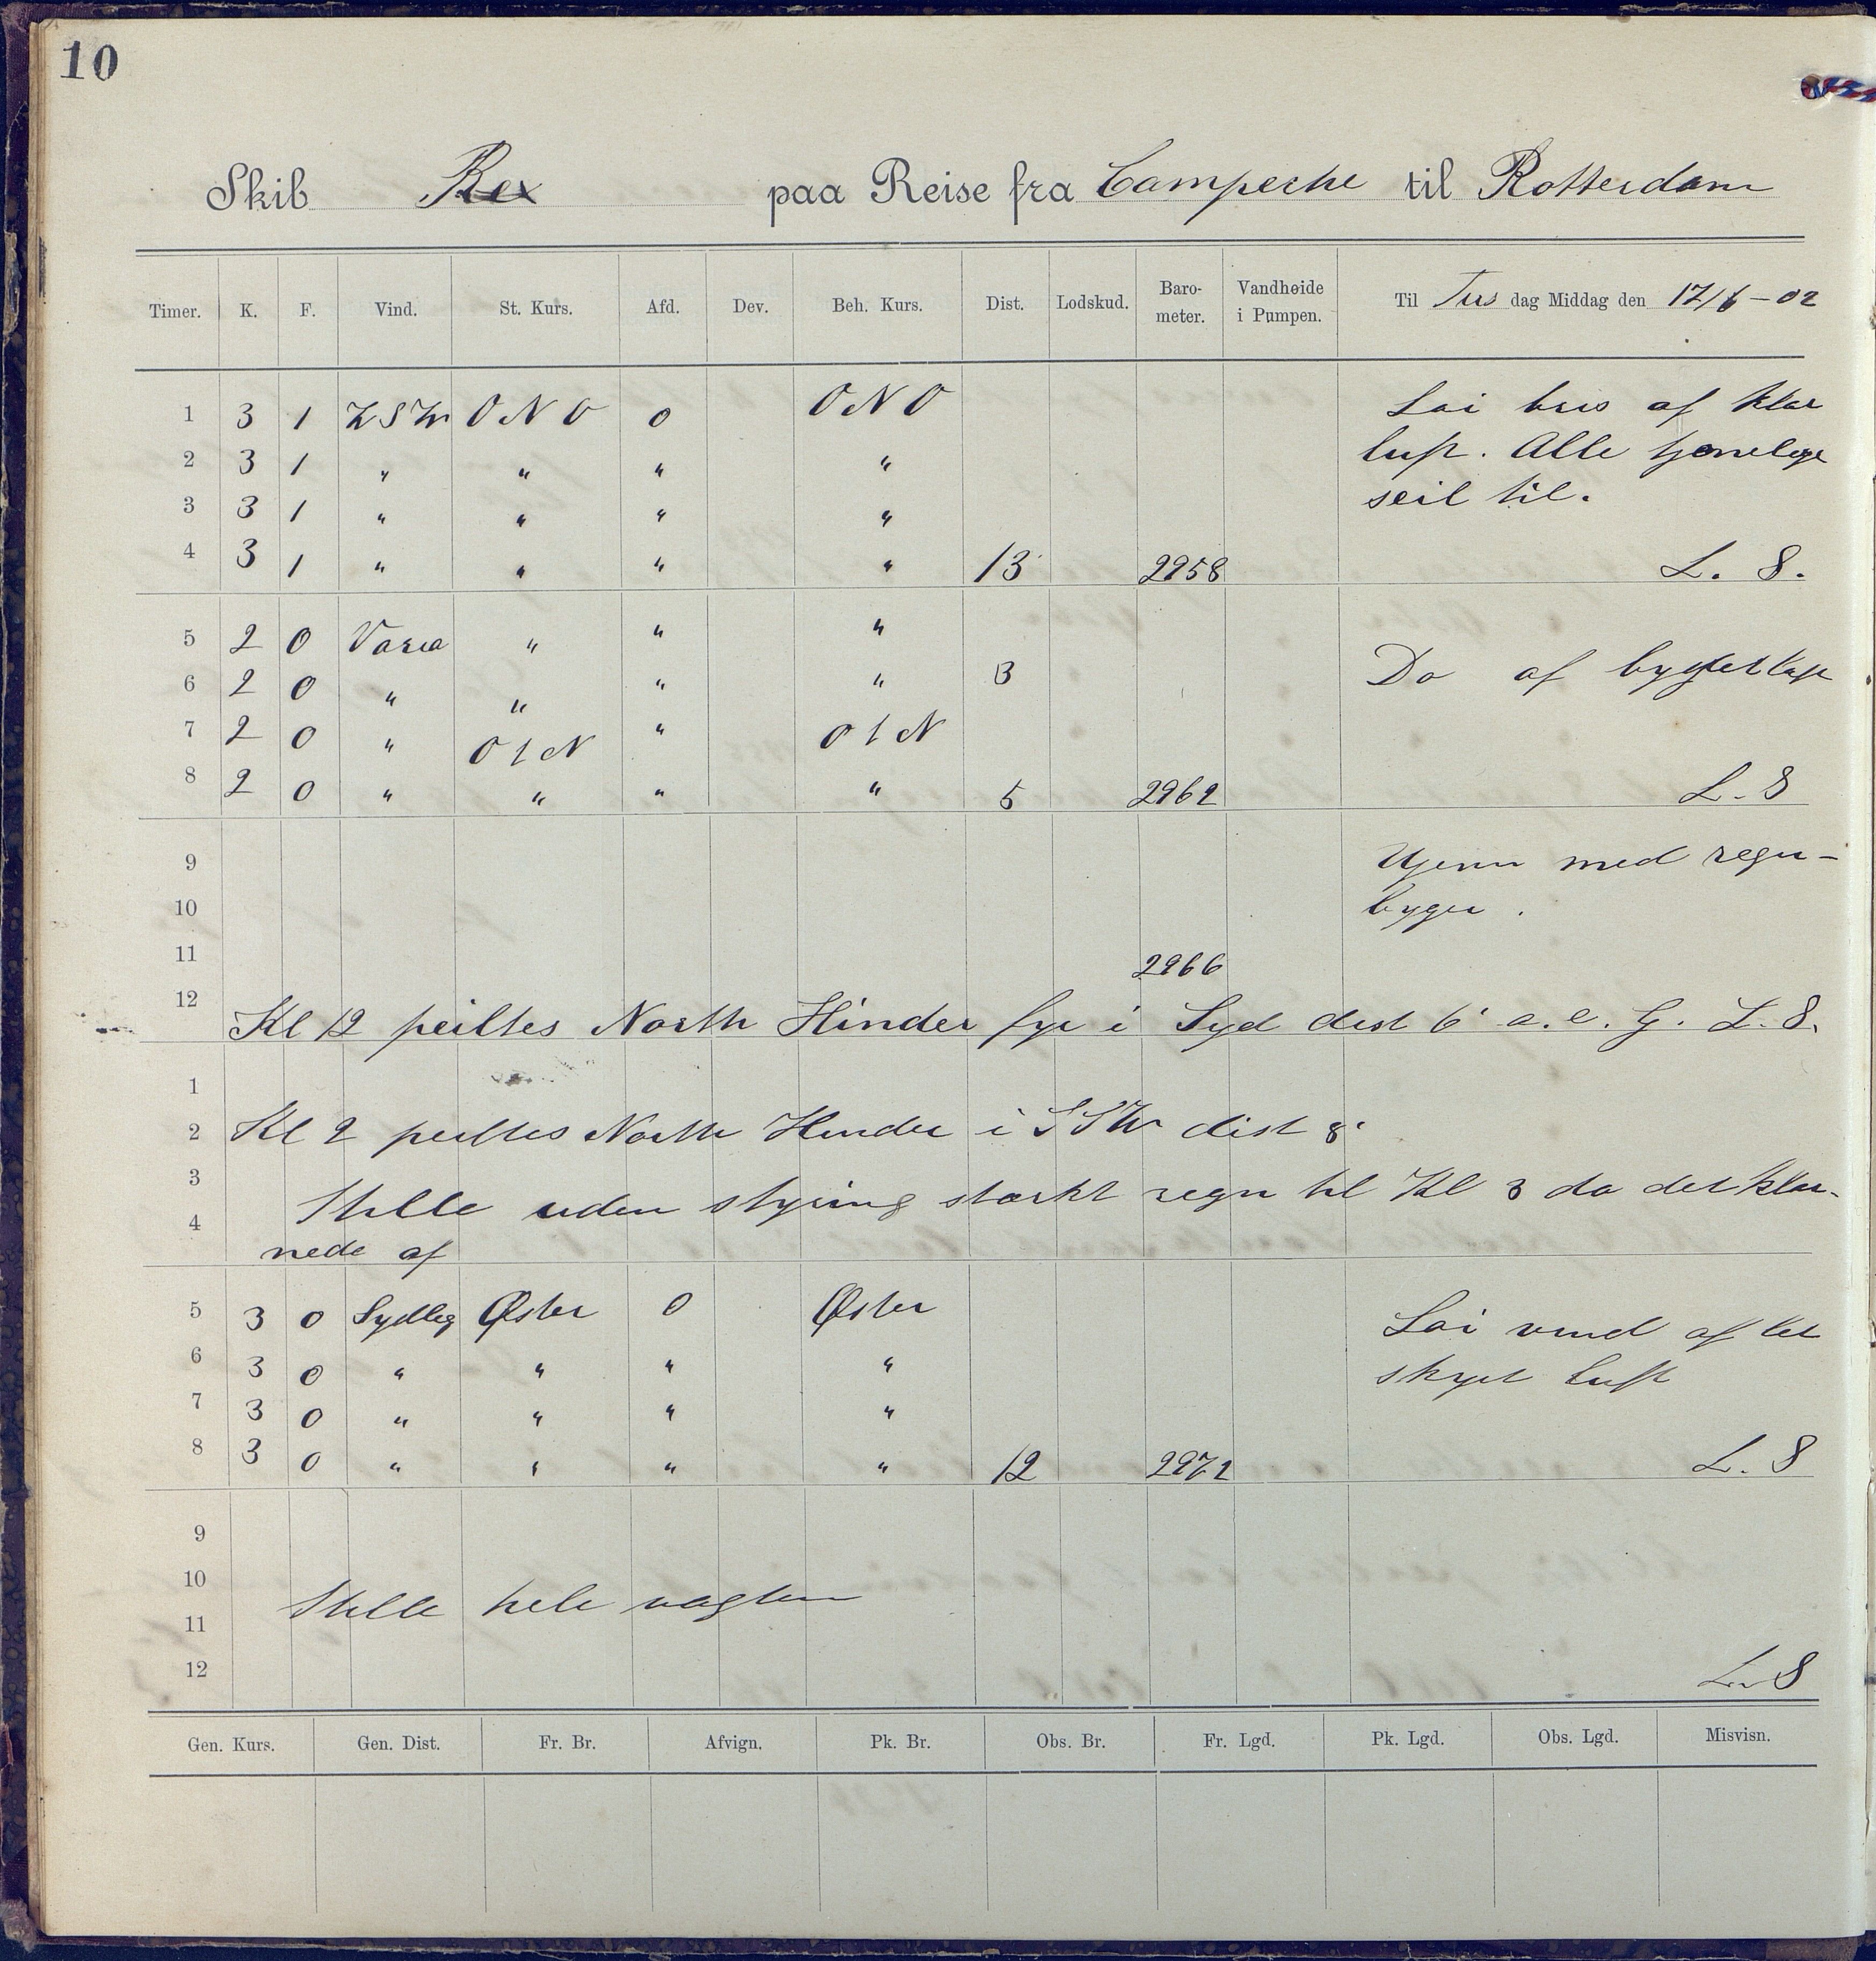 10
Skib Rex paa Reise fra Campeche til Rotterdam
Timer. K. F. Vind. St. Kurs. Afd. Dev. Beh. Kurs. Dist. Lodskud. Baro-meter. Vandhøide i Pumpen. Til Tirs dag Middag den 17/6-02
1 3 1 WSW ONO 0 ONO Løi bris af klar
2 3 1 " " " " luft. Alle tjenelige
3 3 1 " " " " seil til.
4 3 1 " " " " 13 2958 L. S.
5 2 0 Varia " " "
6 2 0 " " " " 3 Do af byget luft
7 2 0 " O t N " O t N
8 2 0 " " " " 5 2962 L. S
9 Ujevn med regn-
10 byger.
11 2966
12 Kl 12 peiltes North Hinder fyr i Syd dist 6' a. e. G. L. S.
1
2 Kl 2 peiltes North Hinder i SSW dist 8'
3 Stille uden styring stærkt regn til Kl 3 da det klar-
4 nede af
5 3 0 Sydlig Øster 0 Øster Løi vind af let
6 3 0 " " " " skyet luft
7 3 0 " " " "
8 3 0 " " " " 12 2972 L. S
9
10 Stille hele vagten
11
12 L. S
Gen. Kurs. Gen. Dist. Fr. Br. Afvign. Pk. Br. Obs. Br. Fr. Lgd. Pk. Lgd. Obs. Lgd. Misvisn.